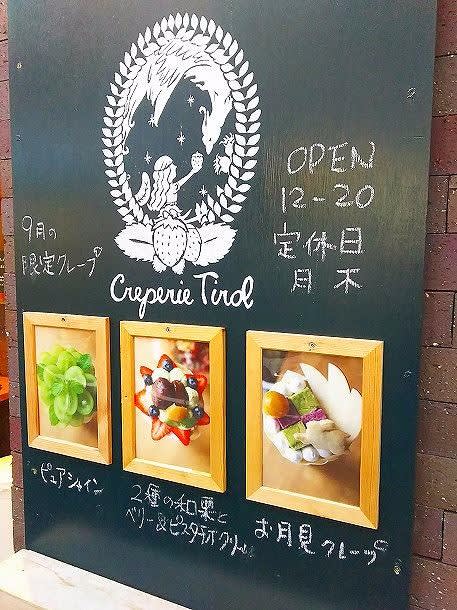 OPEN
12-20
定休日
月 木
9月の
限定クレープ
Creperie Tirol
ピュアシャイン
2種の和栗と
ベリー&ピスタチオクリーム
お月見クレープ